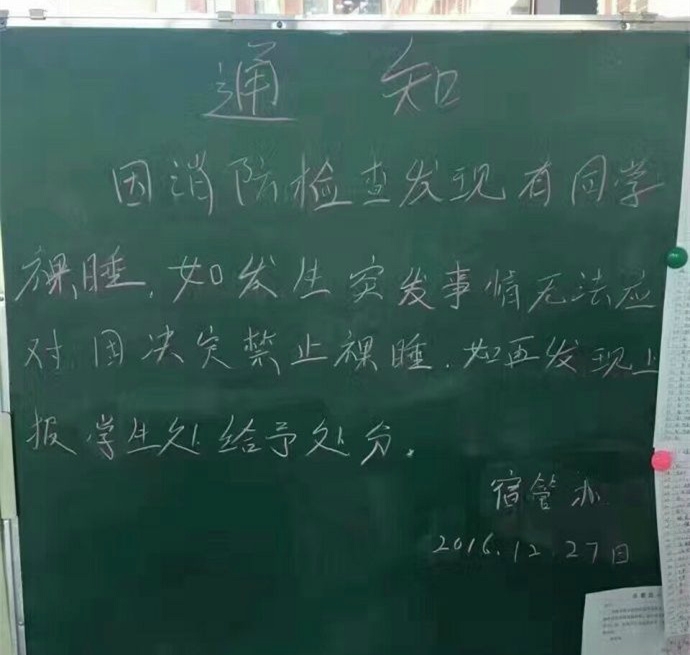 通 知
因消防检查发现有同学
裸睡，如发生突发事情无法应
对，固决定禁止裸睡，如再发现上
报学生处给予处分。
宿管办
2016.12.27日